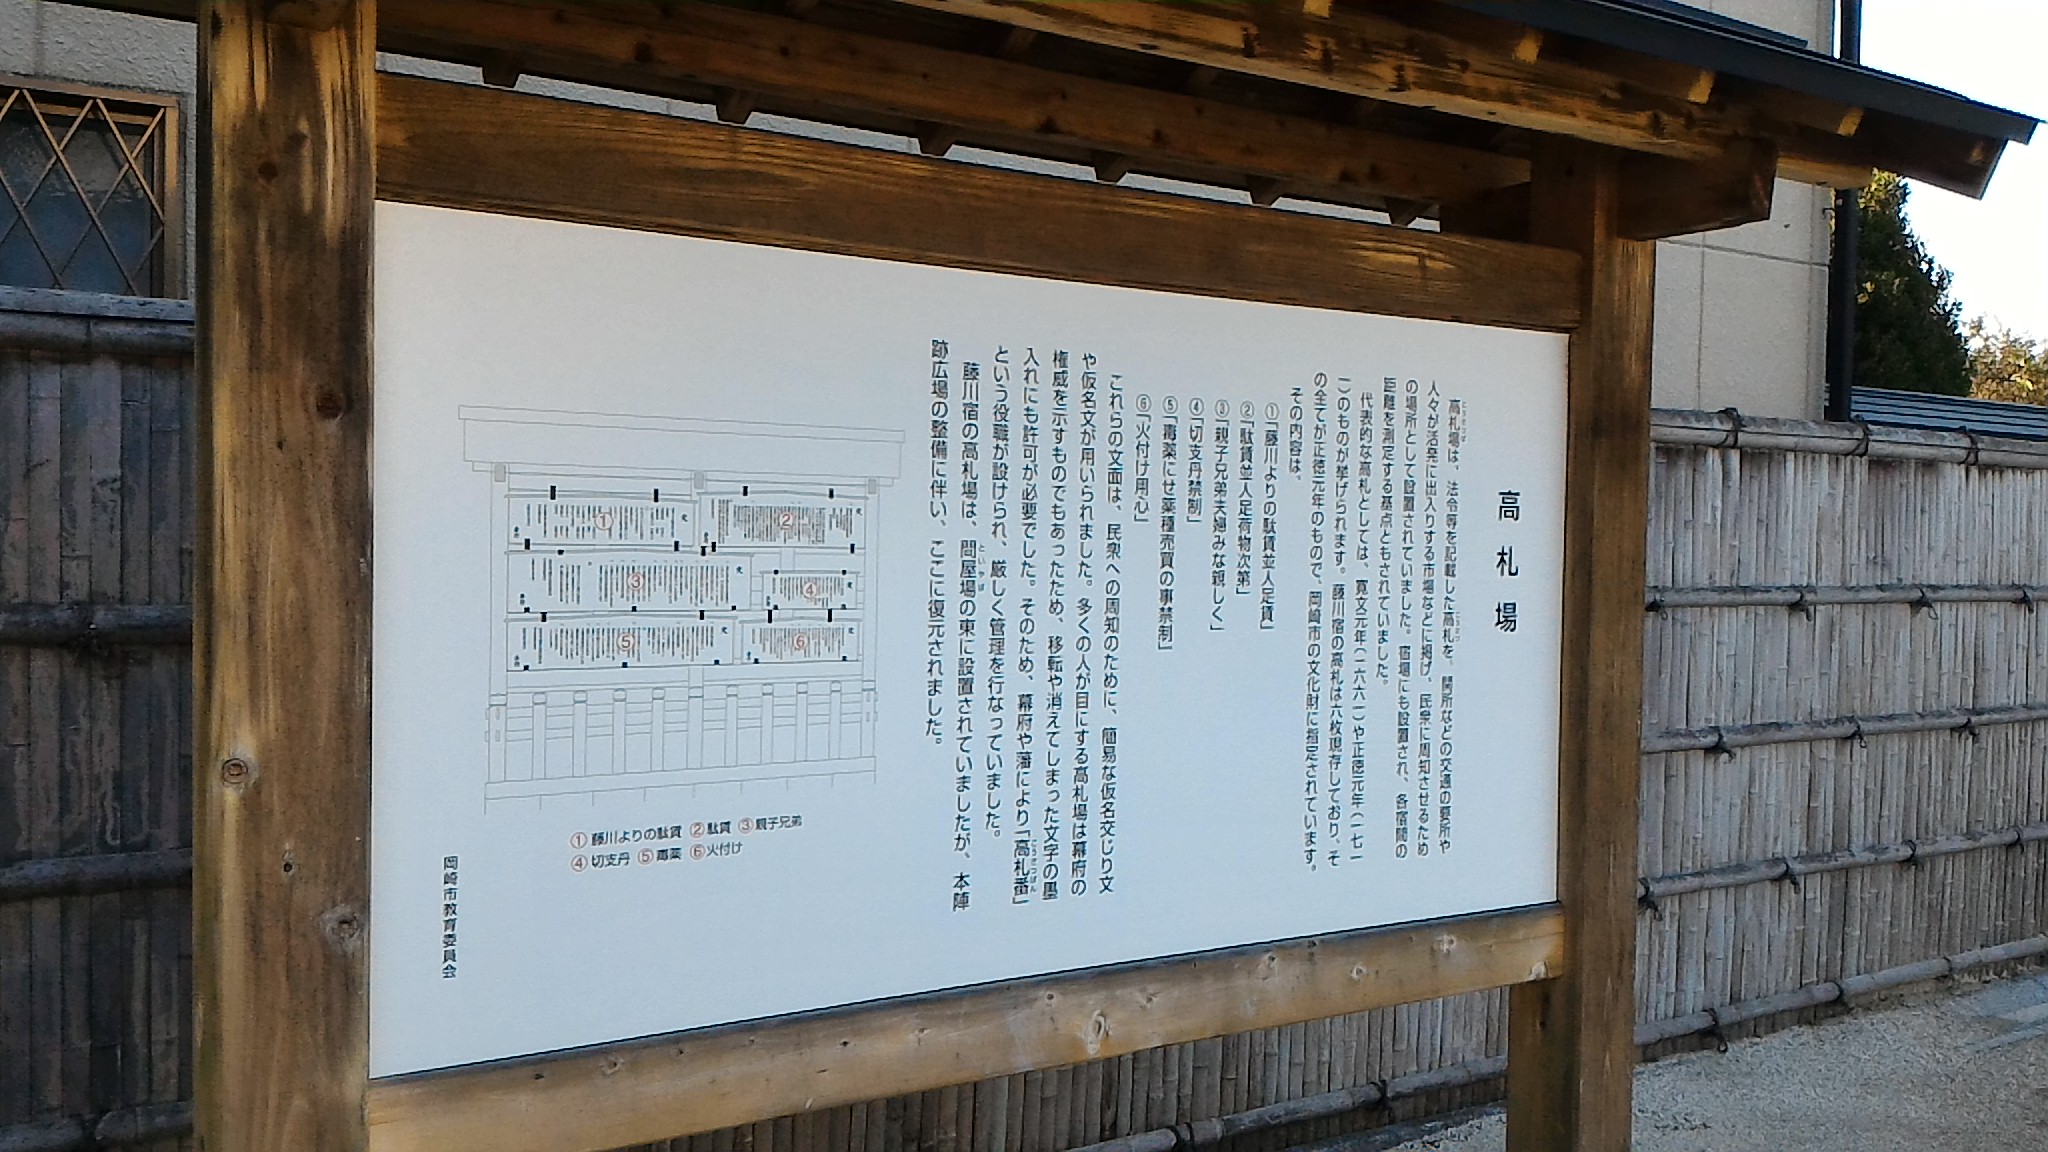 高札場
高札場は、法令等を記載した高札を、関所などの交通の要所や
人々が活発に出入りする市場などに掲げ、民衆に周知させるため
の場所として設置されていました。宿場にも設置され、各宿間の
距離を測定する基点ともされていました。
代表的な高札としては、寛文元年(一六六一)や正徳元年(一七一
一)のものが挙げられます。藤川宿の高札は六枚現存しており、そ
の全てが正徳元年のもので、岡崎市の文化財に指定されています。
その内容は、
①「藤川よりの駄賃並人足賃」
②「駄賃並人足荷物次第」
③「親子兄弟夫婦みな親しく」
④「切支丹禁制」
⑤「毒薬にせ薬種売買の事禁制」
⑥「火付け用心」
これらの文面は、民衆への周知のために、簡易な仮名交じり文
や仮名文が用いられました。多くの人が目にする高札場は幕府の
権威を示すものでもあったため、移転や消えてしまった文字の墨
入れにも許可が必要でした。そのため、幕府や藩により「高札番」
という役職が設けられ、厳しく管理を行なっていました。
藤川宿の高札場は、問屋場の東に設置されていましたが、本陣
跡広場の整備に伴い、ここに復元されました。
① ② ③ ④ ⑤ ⑥
①藤川よりの駄賃 ②駄賃 ③親子兄弟
④切支丹 ⑤毒薬 ⑥火付け
岡崎市教育委員会